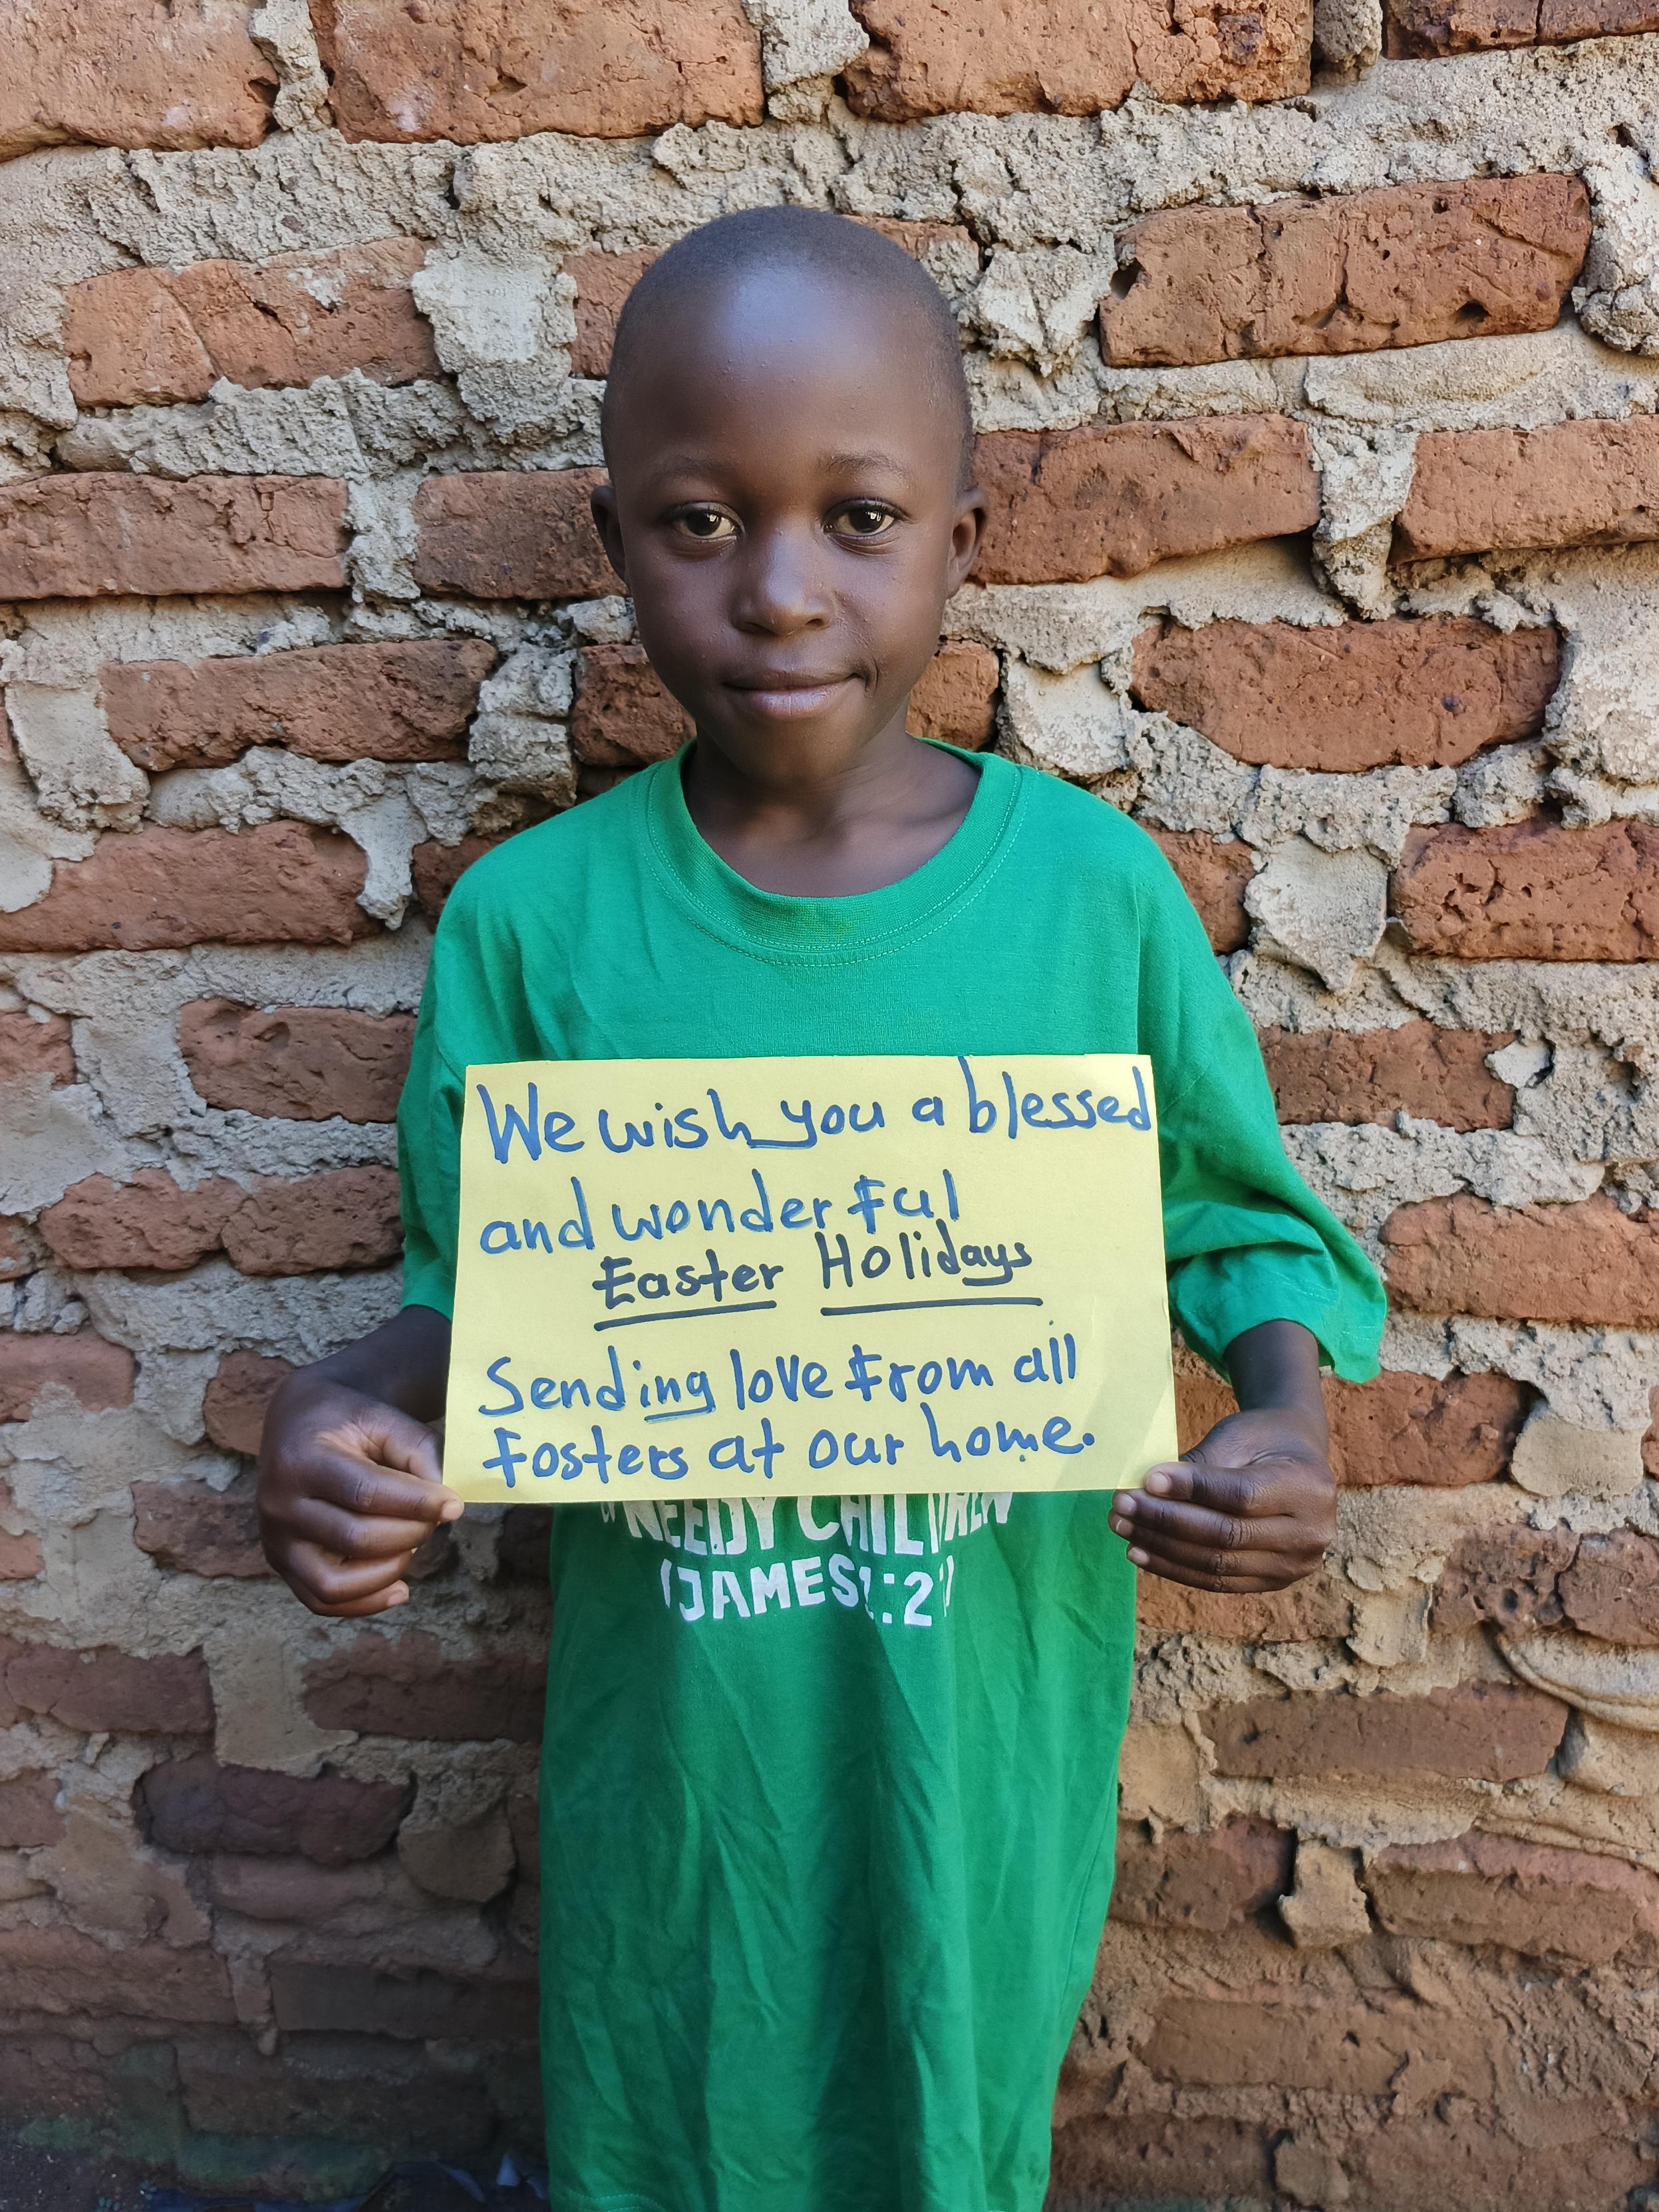 We wish you a blessed
and wonderful
Easter Holidays
Sending love from all
fosters at our home.
NEEDY CHILDREN
(JAMES 1:2